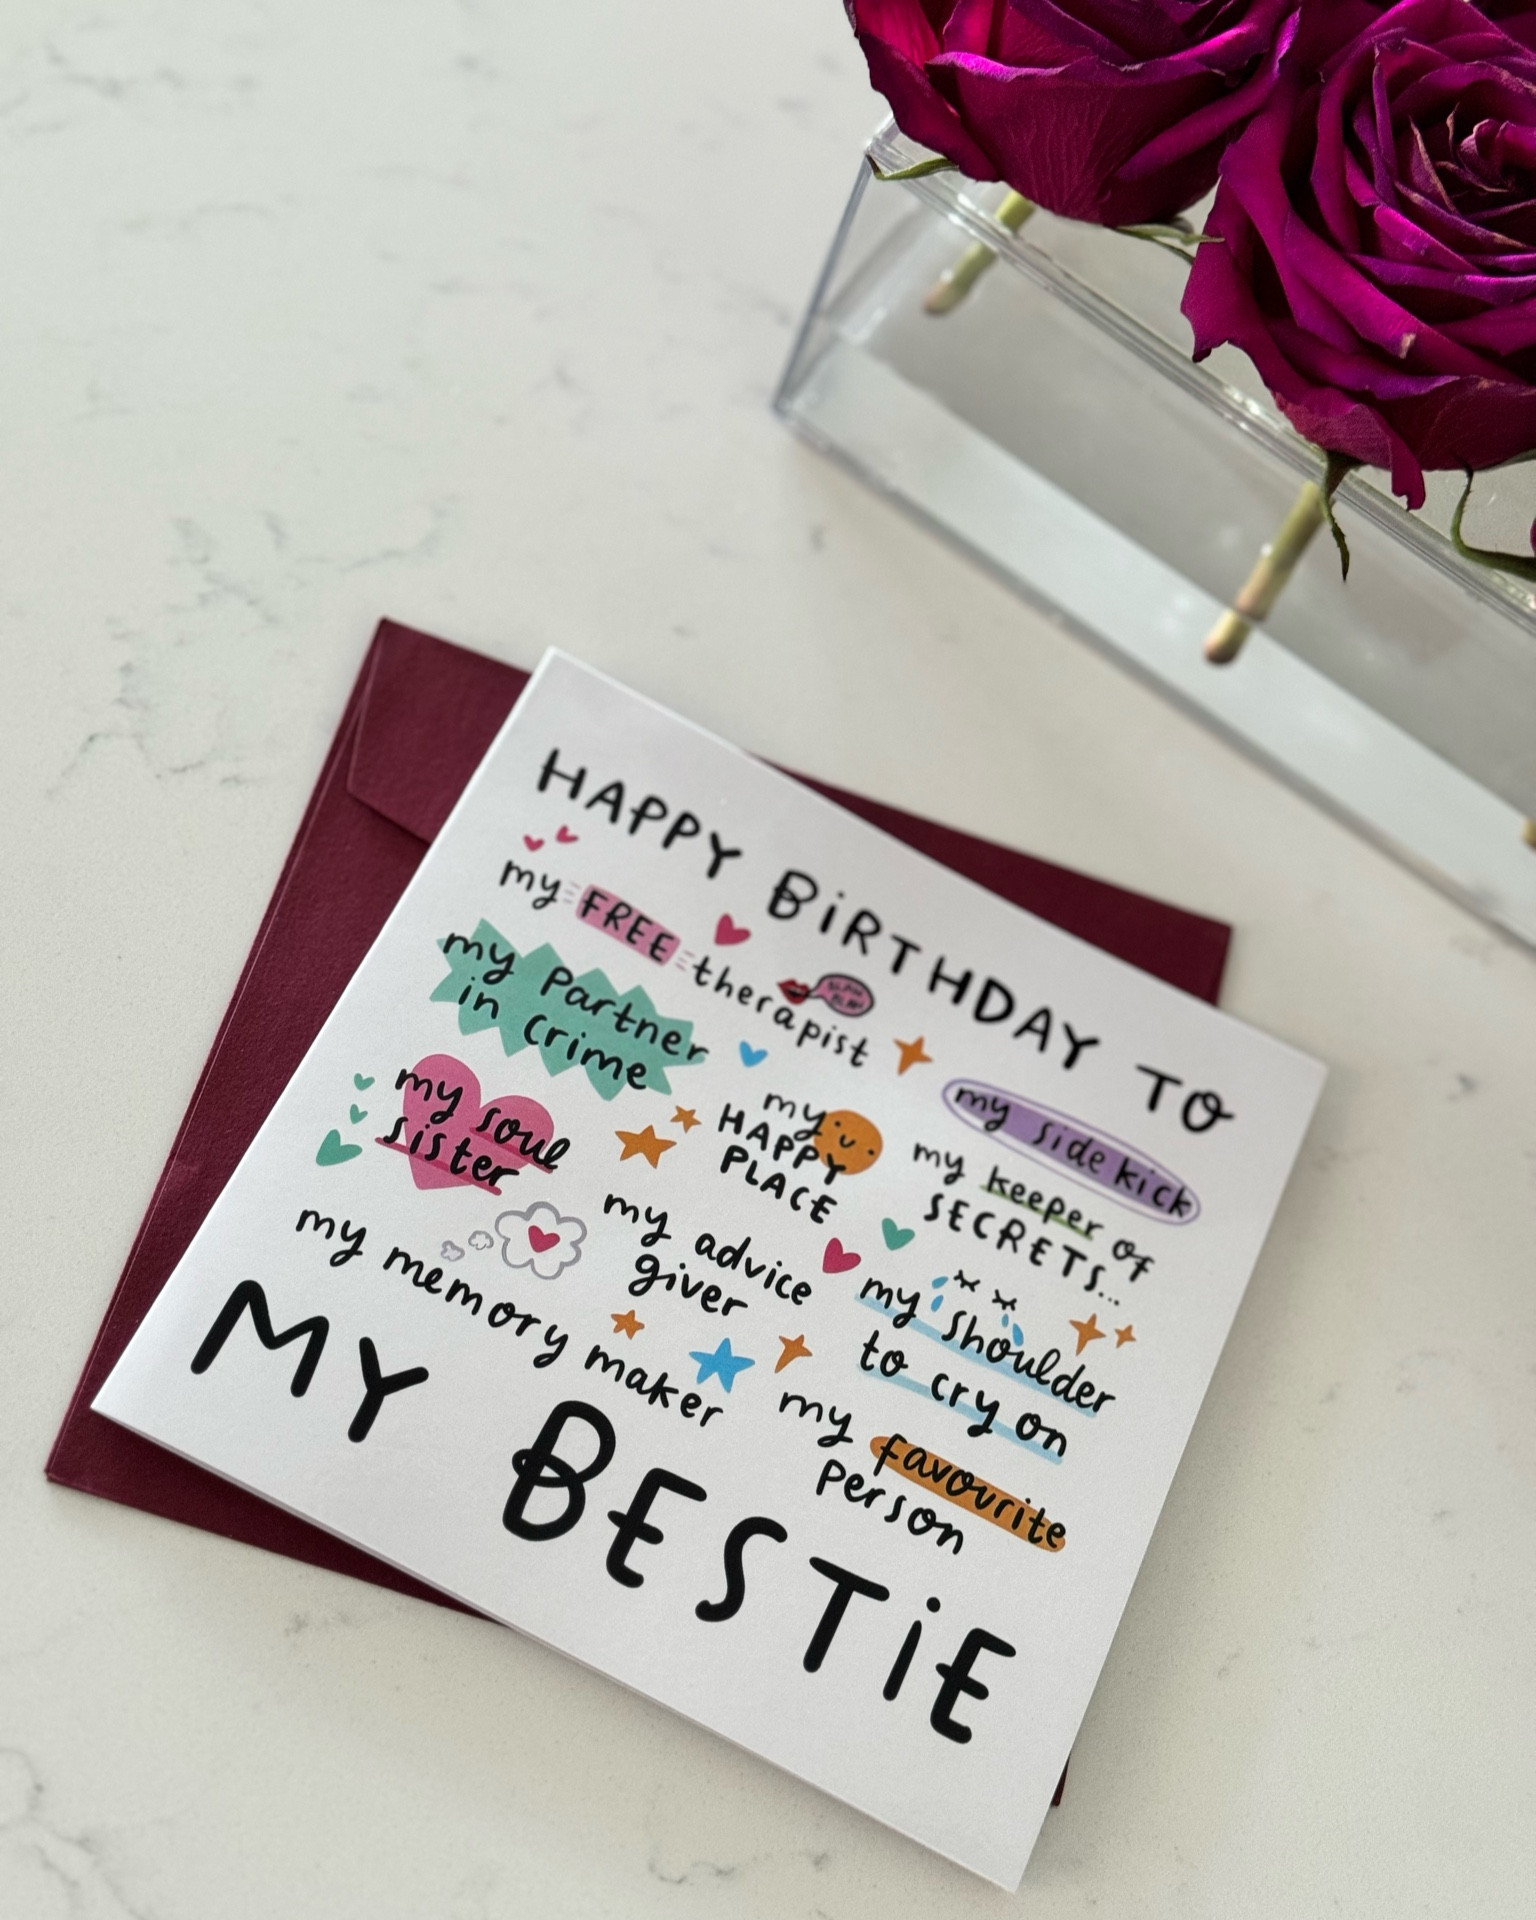 HAPPY BiRTHDAY TO
my FREE therapist
BLAH
BLAH
my partner
in crime
my side kick
my soul
sister
my
HAPPY
PLACE
my keeper of
SECRETS...
my memory maker
my advice
giver
my shoulder
to cry on
my favourite
person
MY BESTiE